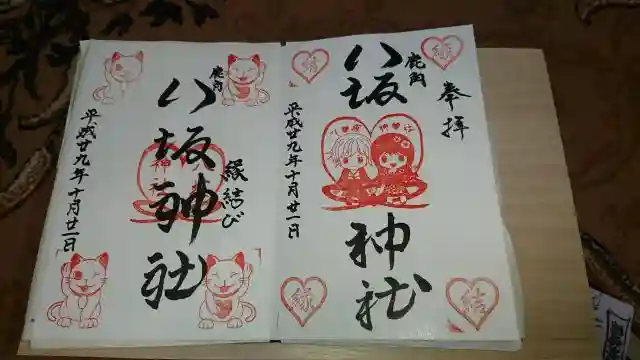 奉拝
鹿角
八坂
神社
平成廿九年十月廿一日
縁
結
縁
結
鹿角
八坂神社
縁結び
平成廿九年十月廿一日